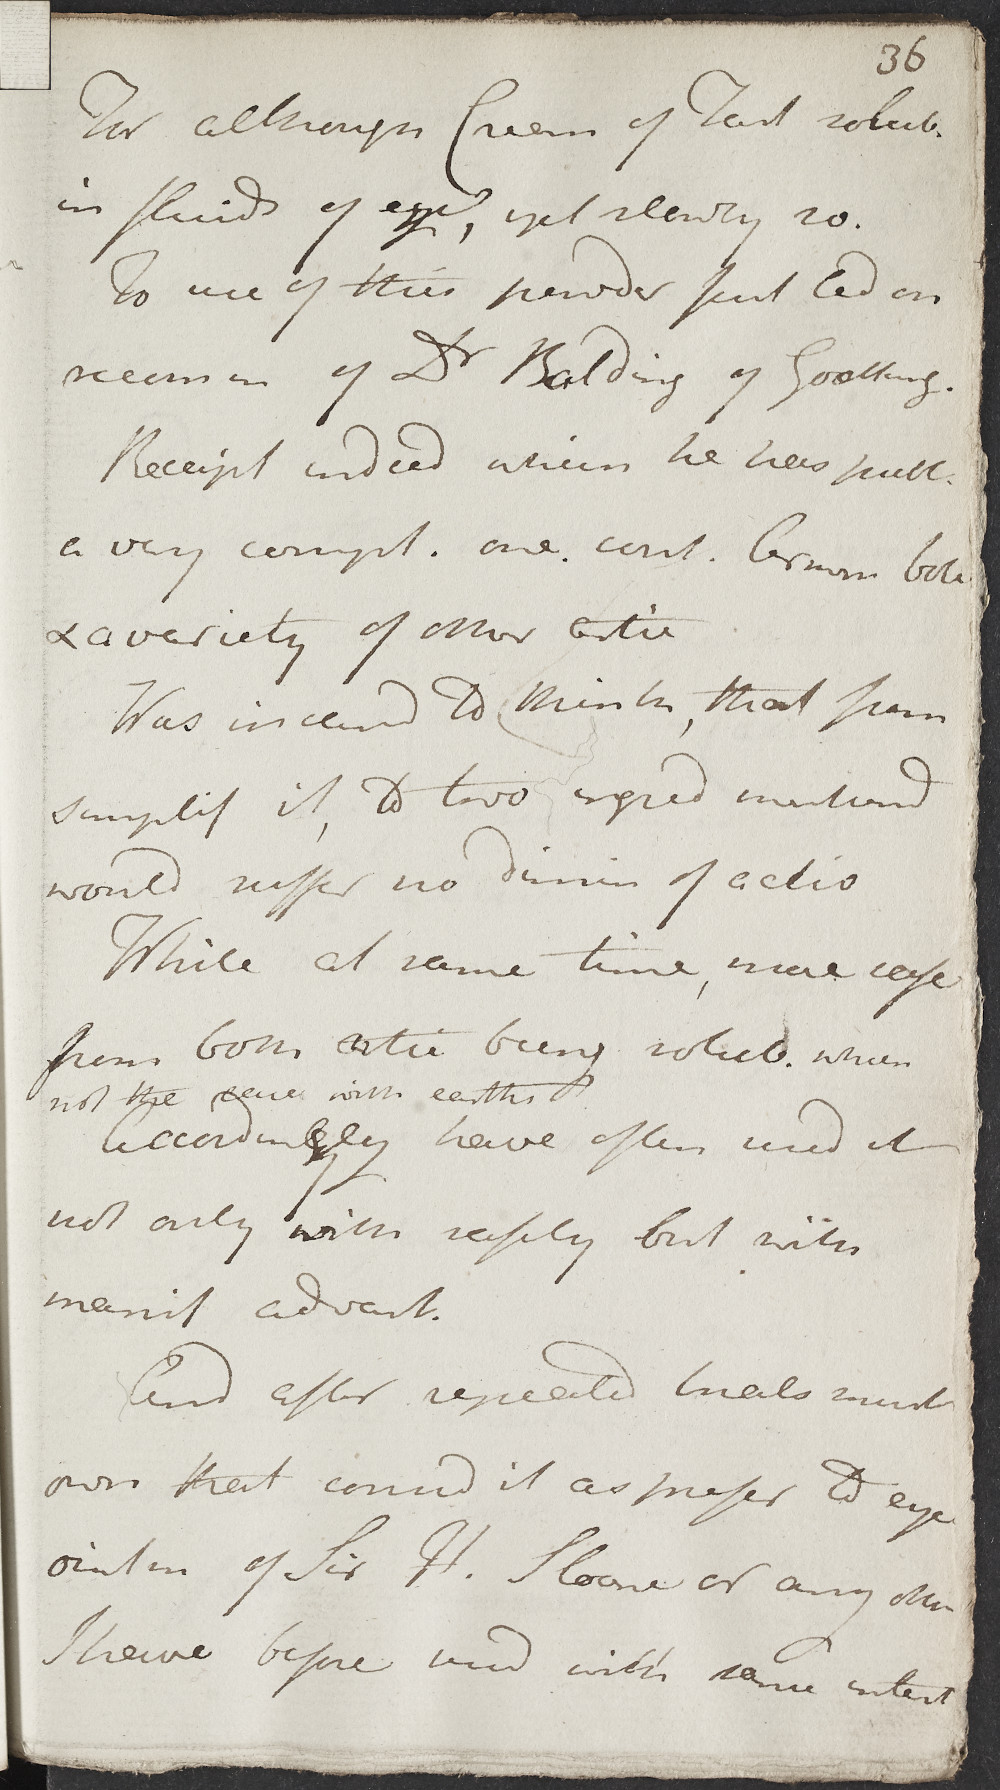 36
For although Cream of Tart solub.
in fluids of eye, yet slowly so.
To use of this powder first led on
recomm of Dr Balding of Goetting.
Receipt indeed which he has publ.
a very compt. one. cont. Armen bole
& a variety of other artic
Was inclind to think, that from
simplif it, to two ingred mentiond
would suffer no dimin of actio
While at same time, more safe
from both artic being solub. when
not the case with earths
Accordingly have often used it
not only with safety but with
manif advant.
And after repeated trials must
own that consid it as prefer to eye
ointm of Sir H. Sloane or any other
I have before used with same intent